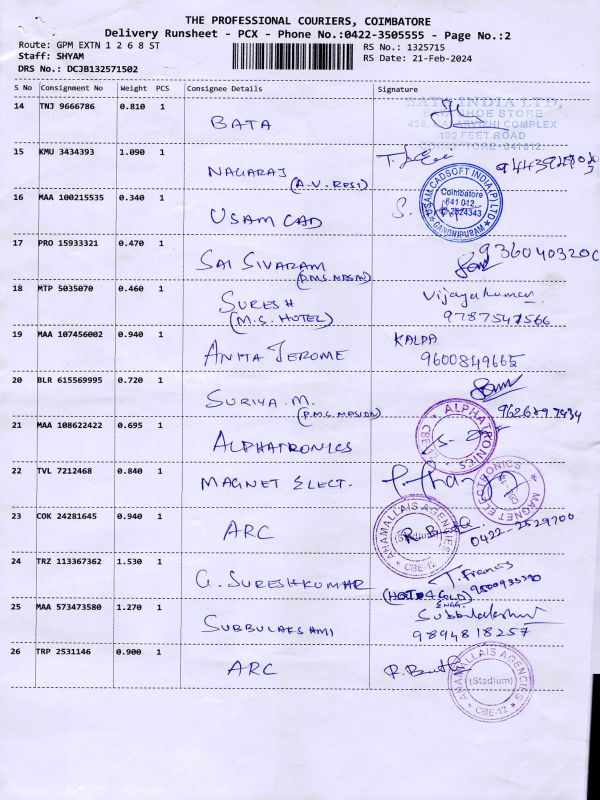 THE PROFESSIONAL COURIERS, COIMBATORE
Delivery Runsheet - PCX - Phone No.:0422-3505555 - Page No.:2
Route: GPM EXTN 1 2 6 8 ST
RS No.: 1325715
Staff: SHYAM
RS Date: 21-Feb-2024
DRS No.: DCJB132571502
S No Consignment No Weight PCS Consignee Details Signature
14 TNJ 9666786 0.810 1
BATA
BATA INDIA LTD,
SHOE STORE
COMPLEX
100 FEET ROAD
15 KMU 3434393 1.090 1
NAGARAJ
(A.V. RESI)
16 MAA 100215535 0.340 1
USAM CAD
USAM CADSOFT INDIA (P) LTD
Coimbatore
641 012
2524343
GANDHIPURAM
17 PRO 15933321 0.470 1
SAI SIVARAM
(P.M.S. MASAN)
936040320
18 MTP 5035070 0.460 1
SURESH
(M.S. HOTEL)
Vijayakumar
9787547566
19 MAA 107456002 0.940 1
ANITA JEROME
KALPA
9600849665
20 BLR 615569995 0.720 1
SURIYA. M.
21 MAA 108622422 0.695 1
ALPHATRONICS
ALPHATRONICS
22 TVL 7212468 0.840 1
MAGNET ELECT.
MAGNET ELECTRONICS
23 COK 24281645 0.940 1
ARC
ANAMALLAIS AGENCIES
(Stadium)
CBE-12
0422-2529700
24 TRZ 113367362 1.530 1
G. SURESHKUMAR
(HOT & COLD)
ENGG.
T. Francis
25 MAA 573473580 1.270 1
SUBBULAKSHMI
Subbulakshmi
9894818257
26 TRP 2531146 0.900 1
ARC
ANAMALLAIS AGENCIES
(Stadium)
CBE-12